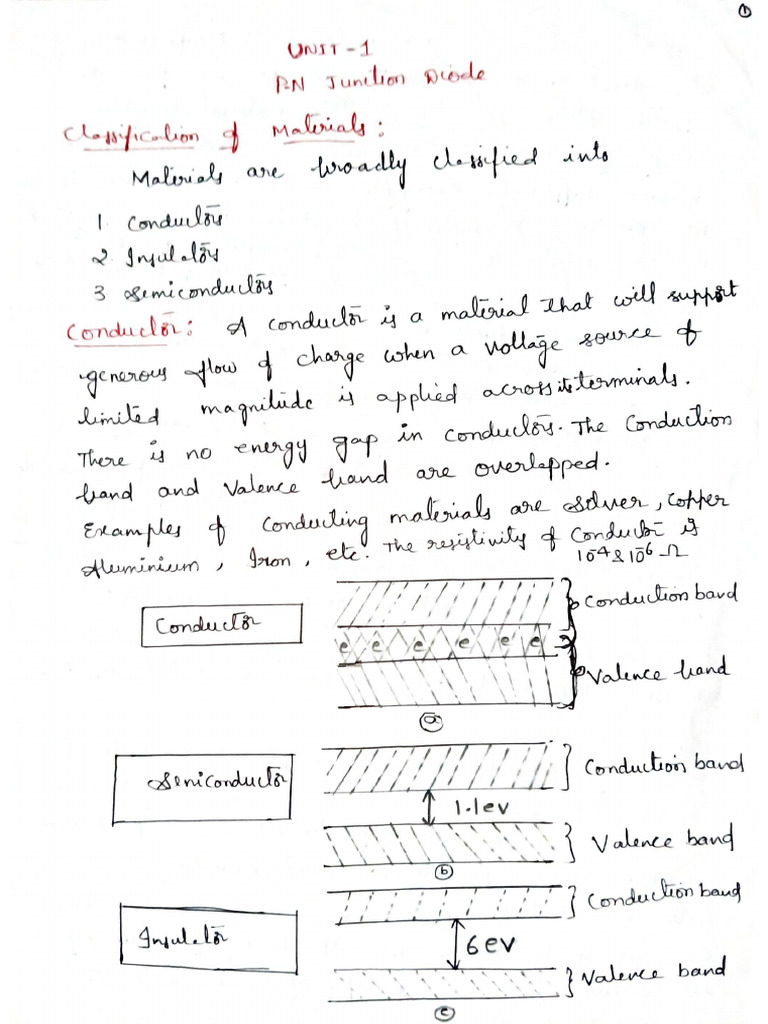 1
UNIT-1
PN Junction Diode
Classification of Materials:
Materials are broadly classified into
1. Conductors
2 Insulators
3 Semiconductors
Conductor: A conductor is a material that will support
generous flow of charge when a voltage source of
limited magnitude is applied across its terminals.
There is no energy gap in conductors. The Conduction
band and Valence band are overlapped.
Examples of Conducting materials are Silver, Copper
Aluminium, Iron, etc. The resistivity of Conductor is
10⁻⁴ & 10⁻⁶ Ω
Conductor
Conduction band
e e e e e e
Valence band
a
Semiconductor
Conduction band
1.1ev
Valence band
b
Insulator
Conduction band
6ev
Valence band
c